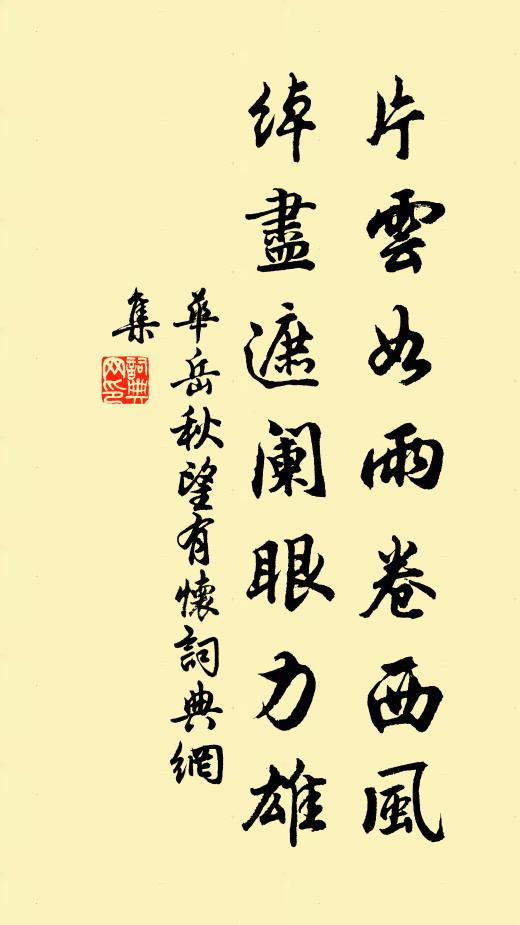 片雲如雨卷西風
綽盡遮闌眼力雄
華岳秋望有懷詞典網
集
詞典
网印